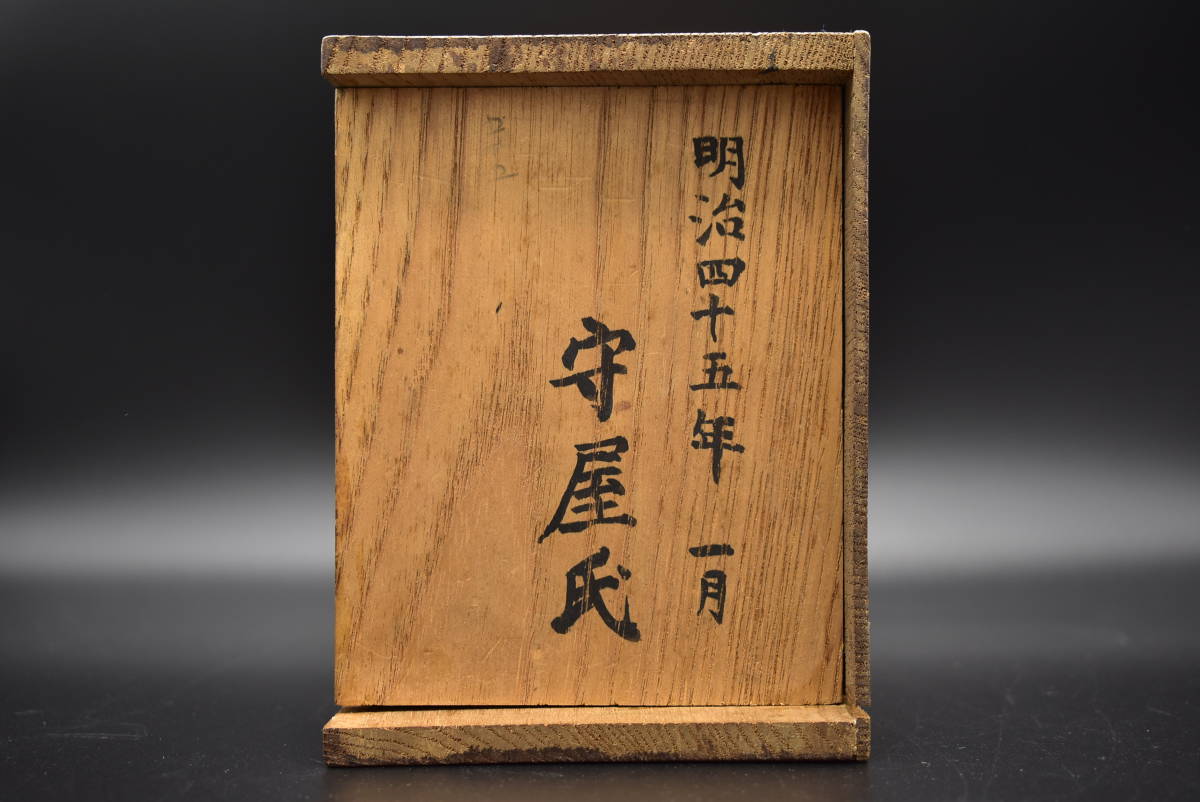 明治四十五年 一月
守屋氏